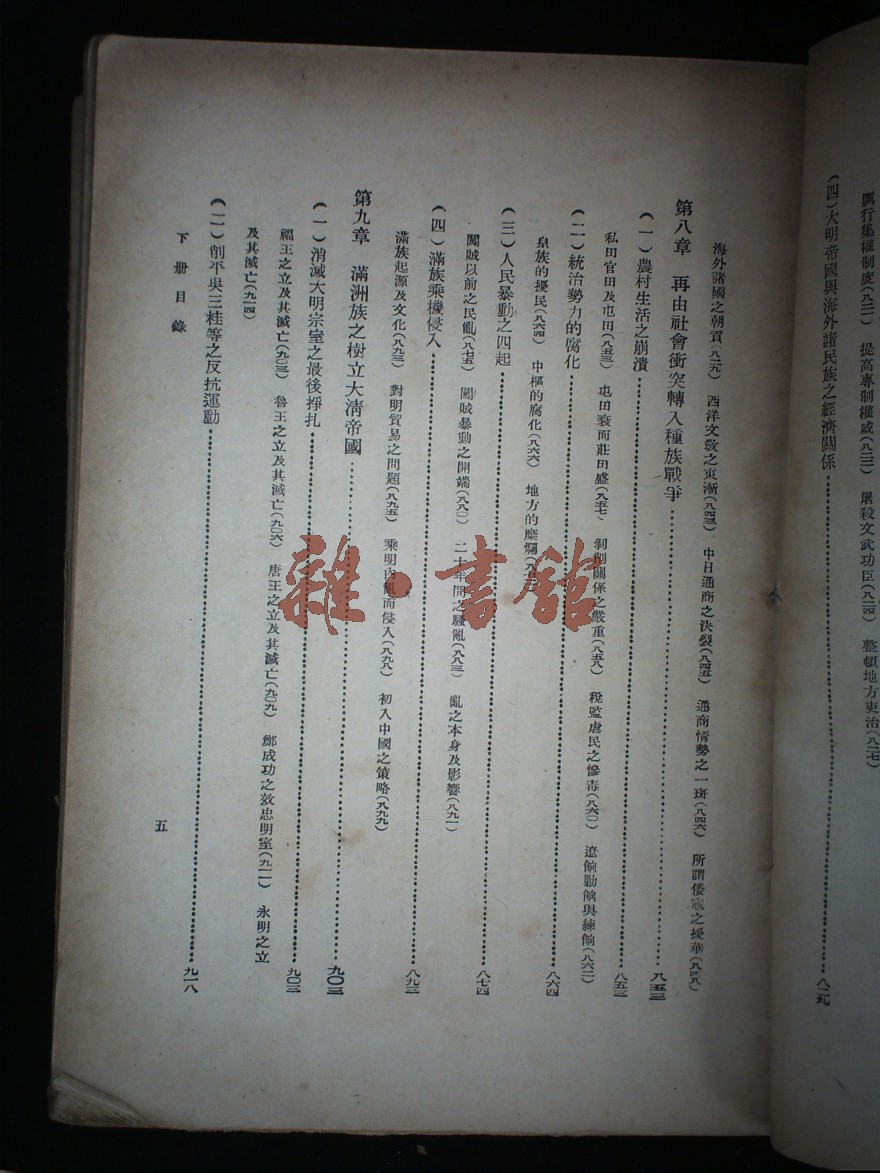 厲行集權制度(八二一) 提高專制權威(八二三) 屠殺文武功臣(八二四) 整頓地方吏治(八二七)
(四)大明帝國與海外諸民族之經濟關係 八二九
海外諸國之朝貢(八二九) 西洋文敎之東漸(八四三) 中日通商之決裂(八四五) 通商情勢之一斑(八四六) 所謂倭寇之擾華(八四八)
第八章 再由社會衝突轉入種族戰爭 八五三
(一)農村生活之崩潰 八五三
私田官田及屯田(八五三) 屯田衰而莊田盛(八五七) 剝削關係之嚴重(八五八) 稅監虐民之慘毒(八六〇) 遼餉勦餉與練餉(八六二)
(二)統治勢力的腐化 八六四
皇族的擾民(八六四) 中樞的腐化(八六六) 地方的糜爛
(三)人民暴動之四起 八七四
闖賊以前之民亂(八七五) 闖賊暴動之開端(八八〇) 二十年間之騷亂(八八三) 亂之本身及影響(八九一)
(四)滿族乘機侵入 八九三
滿族起源及文化(八九三) 對明貿易之問題(八九五) 乘明內亂而侵入(八九八) 初入中國之策略(八九九)
第九章 滿洲族之樹立大淸帝國 九〇三
(一)消滅大明宗室之最後掙扎 九〇三
福王之立及其滅亡(九〇三) 魯王之立及其滅亡(九〇六) 唐王之立及其滅亡(九〇九) 鄭成功之效忠明室(九一一) 永明之立
及其滅亡(九一四)
(二)削平吳三桂等之反抗運動 九一八
下册目錄
五
雜·書館